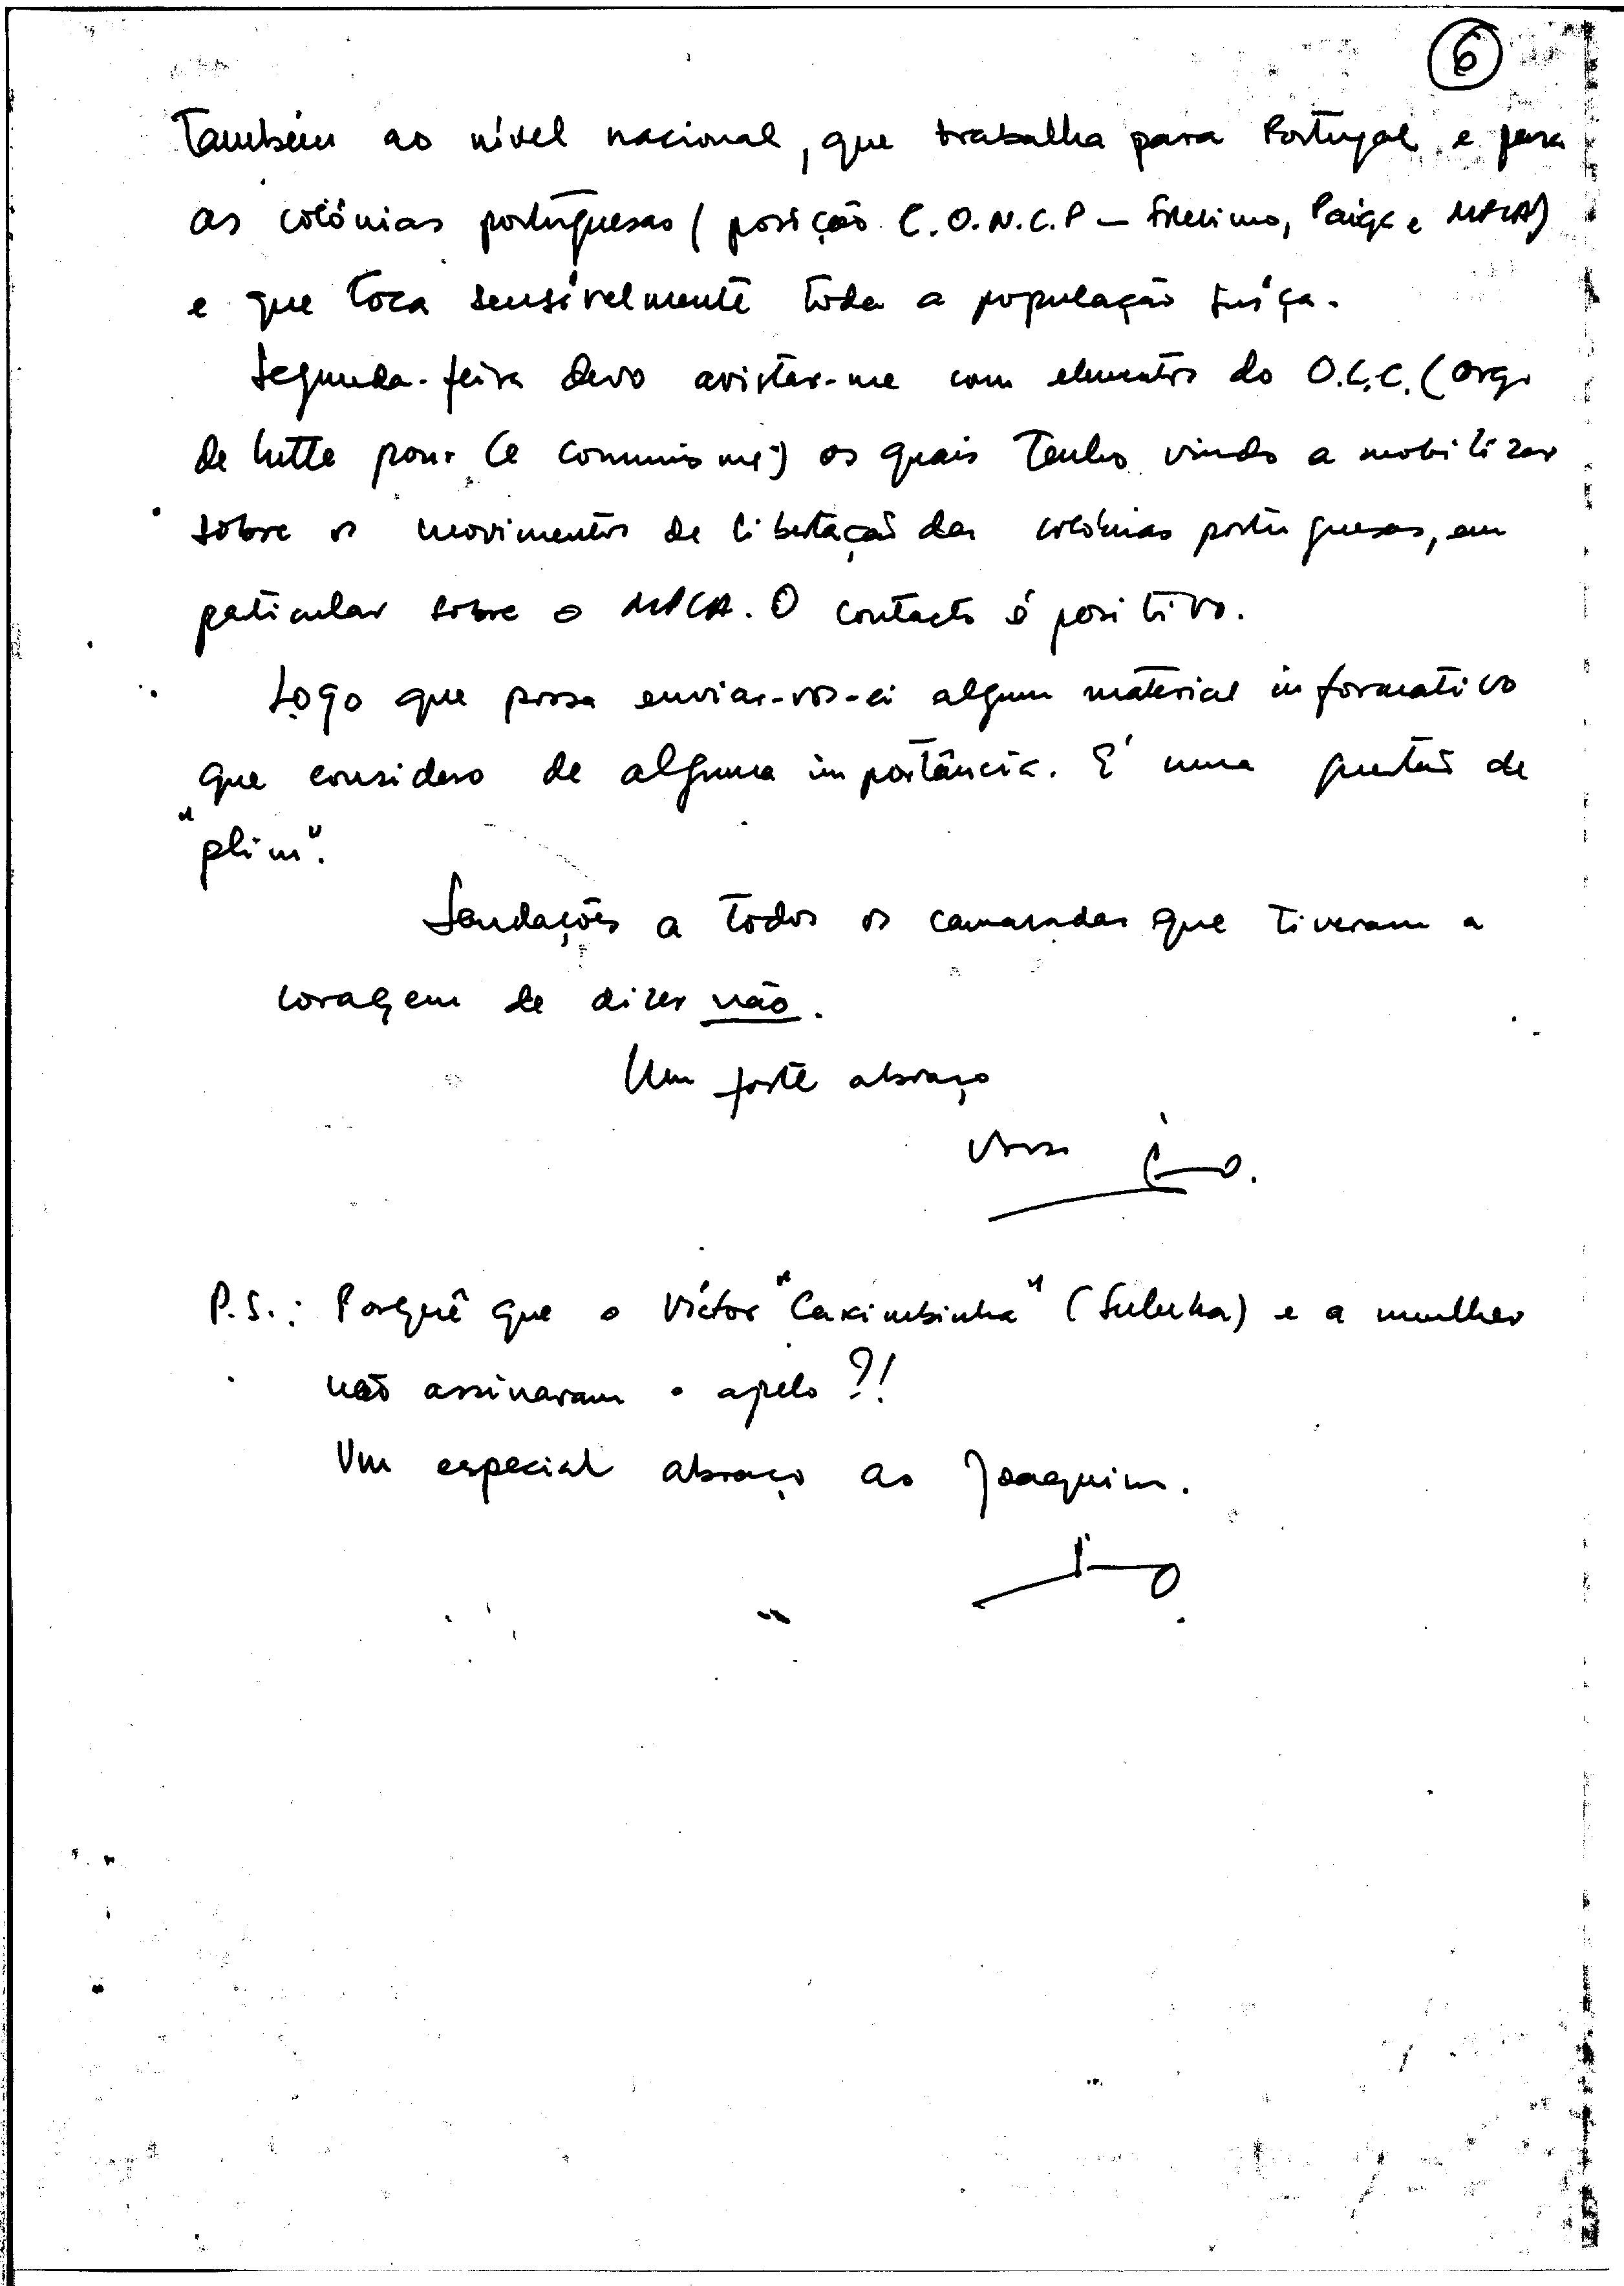 6
também ao nível nacional, que trabalha para Portugal e para
as colónias portuguesas (posição C.O.N.C.P – Frelimo, Paigc e MPLA)
e que toca sensívelmente toda a população suíça.
Segunda-feira devo avistar-me com elementos do O.L.C. (org.
de lutte pour le communisme) os quais tenho vindo a mobilizar
sobre os movimentos de libertação das colónias portuguesas, em
particular sobre o MPLA. O contacto é positivo.
Logo que possa enviar-vos-ei algum material informativo
que considero de alguma importância. É uma questão de
"plim".
Saudações a todos os camaradas que tiveram a
coragem de dizer não.
Um forte abraço
Vosso
P.S.: Porquê que o Víctor "Caximbinha" (Suluka) e a mulher
não assinaram o apelo?!
Um especial abraço ao Joaquim.